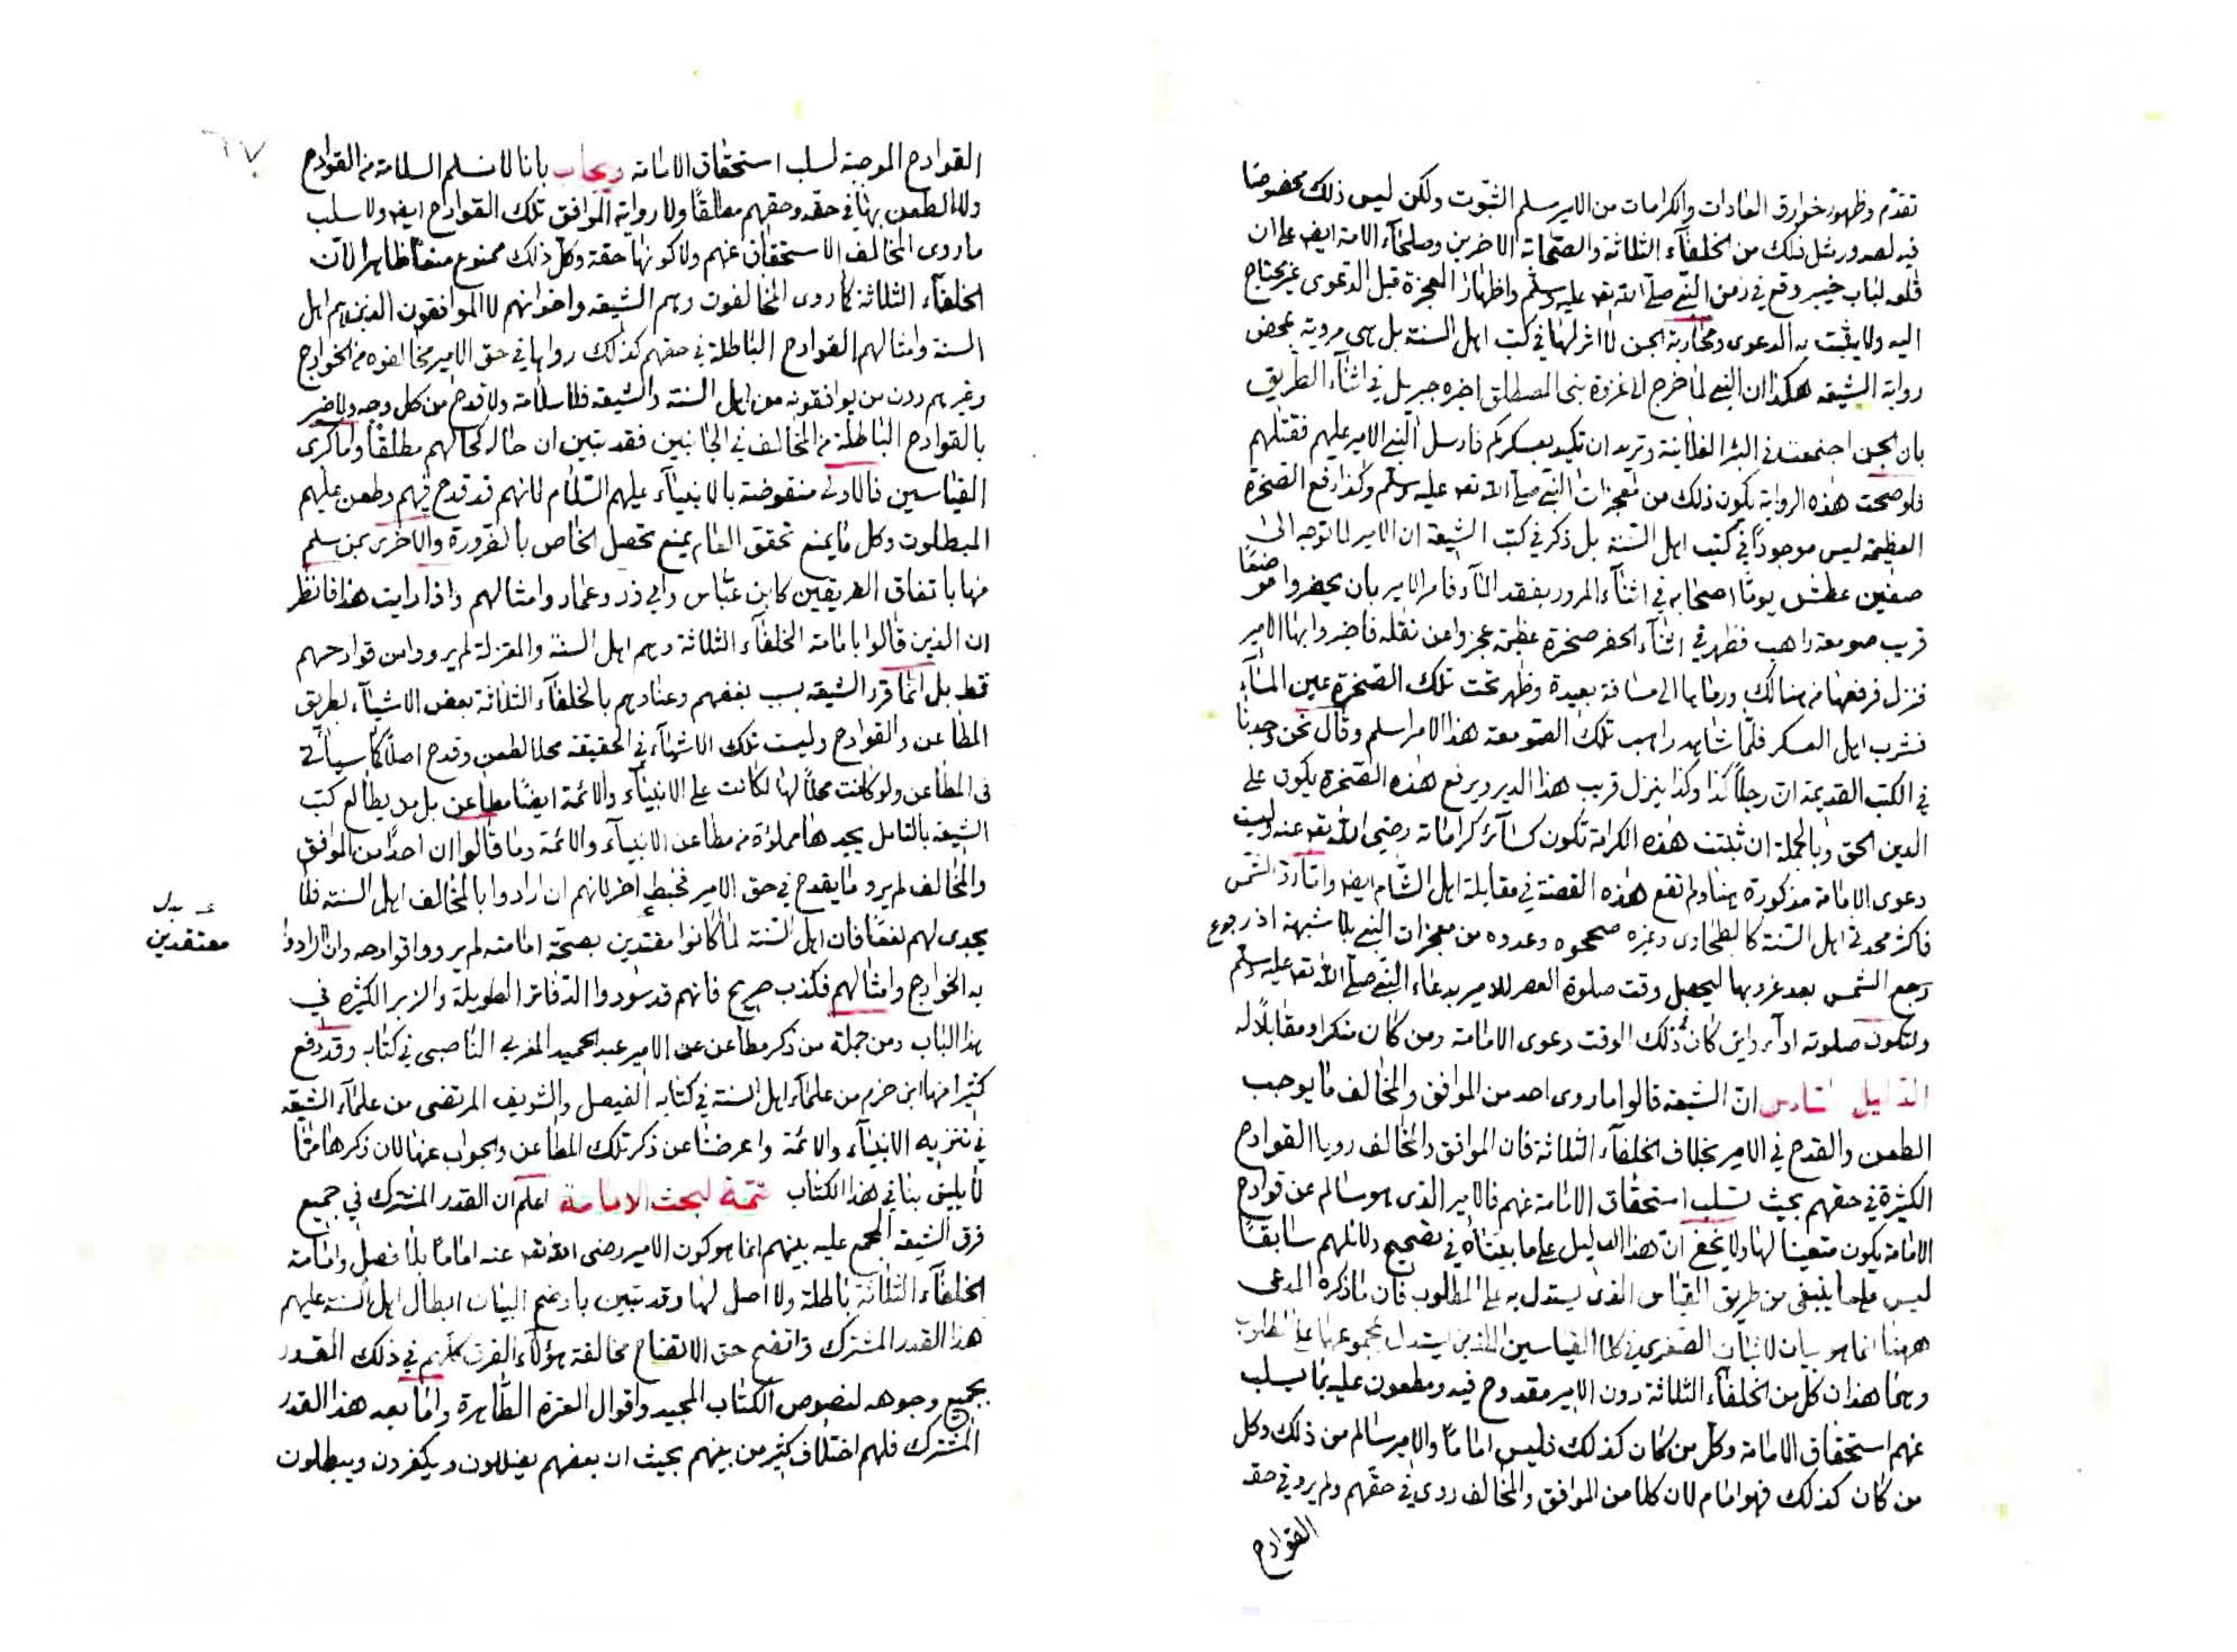 تقدم وظهور خوارق العادات والكرامات من الامير سلم الثبوت ولكن ليس ذلك مخصوصا
فيه لصدور مثل ذلك من الخلفآء الثلاثة والصحابة الاخرين وصلحاء الامة ايضا على ان
قلعه لباب خيبر وقع في زمن النبي صلى الله تعه عليه وسلم واظهار المعجزة قبل الدعوى غير محتاج
اليه ولا يثبت به الدعوى ومحاربة الجن لا اثر لها في كتب اهل السنة بل هى مروية بمحض
رواية الشيعه هكذا ان النبي لما خرج الى غزوة بنى المصطلق اخبره جبريل في اثنآء الطريق
بان الجن اجتمعت في البئر الفلانية وتريد ان تكيد بعسكركم فارسل النبي الامير عليهم فقتلهم
فلو صحت هذه الرواية يكون ذلك من معجزات النبي صلى الله تعه عليه وسلم وكذا رفع الصخرة
العظيمة ليس موجودا في كتب اهل السنة بل ذكر في كتب الشيعة ان الامير لما توجه الى
صفين عطش يوما اصحابه في اثنآء المرور بفقد المآء فامر الامير بان يحفروا موضعا
قريب صومعة راهب فظهر في اثنآء الحفر صخرة عظيمة عجزوا عن نقله فاخبروا بها الامير
فنزل فرفعها من هنالك ورماها الى مسافة بعيدة وظهر تحت تلك الصخرة عين المآء
فشرب اهل العسكر فلما شاهد راهب تلك الصومعة هذا الامر اسلم وقال نحن وجدنا
في الكتب القديمة ان رجلا كذا وكذا ينزل قريب هذا الدير ويرفع هذه الصخرة يكون على
الدين الحق وبالجملة ان ثبتت هذه الكرامة تكون كسآئر كراماته رضى الله تعه عنه وليست
دعوى الامامة مذكورة هنا ولم تقع هذه القصة في مقابلة اهل الشام ايضا واما رد الشمس
فاكثر محدثى اهل السنة كالطحاوى وغيره صححوه وعدوه من معجزات النبي بلا شبهة اذ رجوع
رجع الشمس بعد غروبها ليحصل وقت صلوة العصر للامير بدعاء النبي صلى الله تعه عليه وسلم
ولتكون صلوته اداء واين كان ذلك الوقت دعوى الامامة ومن كان منكرا ومقابلا له
الدليل السادس ان الشيعة قالوا ما روى احد من الموافق والمخالف ما يوجب
الطعن والقدح في الامير بخلاف الخلفآء الثلاثة فان الموافق والمخالف رويا القوادح
الكثيرة في حقهم بحيث تسلب استحقاق الامامة عنهم فالامير الذى هو سالم عن قوادح
الامامة يكون متعينا لها ولا يخفى ان هذا الدليل على ما بيناه في تصحيح دلائلهم سابقا
ليس على ما ينبغى من طريق القياس الذى يستدل به على المطلوب فان ما ذكره المدعى
ههنا انما هو بيان لاثبات الصغرى في كلا القياسين اللذين يستدل بمجموعهما على المطلوب
وهما هذا ان كل من الخلفآء الثلاثة دون الامير مقدوح فيه ومطعون عليه بما يسلب
عنهم استحقاق الامامة وكل من كان كذلك فليس اماما والامير سالم من ذلك وكل
من كان كذلك فهو امام لان كلا من الموافق والمخالف روى في حقهم ولم يرو في حقه
القوادح
القوادح الموجبة لسلب استحقاق الامامة ويجاب بانا لا نسلم السلامة من القوادح
ولا الطعن بها في حقه وحقهم مطلقا ولا رواية الموافق تلك القوادح ايضا ولا سلب
ما روى المخالف الاستحقاق عنهم ولا كونها حقة وكل ذلك ممنوع منعا ظاهرا لان
الخلفآء الثلاثة كما روى المخالفون وهم الشيعه واخوانهم لا الموافقون الذين هم اهل
السنة وامثالهم القوادح الباطلة في حقهم كذلك رواها في حق الامير مخالفوه من الخوارج
وغيرهم دون من يوافقونه من اهل السنة والشيعه فلا سلامة ولا قدح من كل وجه ولا ضير
بالقوادح الباطلة من المخالف في الجانبين فقد تبين ان حاله كحالهم مطلقا واما كبرى
القياسين فالاولى منقوضة بالانبيآء عليهم السلام لانهم قد قدح فيهم وطعن عليهم
المبطلون وكل ما يمنع تحقق العام يمنع تحصل الخاص بالضرورة والاخرى بمن سلم
منها باتفاق الفريقين كابن عباس وابى ذر وعمار وامثالهم واذا رايت هذا فانظر
ان الذين قالوا بامامة الخلفآء الثلاثة وهم اهل السنة والمعتزلة لم يرووا من قوادحهم
قط بل انما قرر الشيعه بسبب بغضهم وعنادهم بالخلفآء الثلاثة بعض الاشيآء بطريق
المطاعن والقوادح وليست تلك الاشيآء في الحقيقة محلا لطعن وقدح اصلا كما سيأتى
فى المطاعن ولو كانت محلا لها لكانت على الانبيآء والائمة ايضا مطاعن بل من يطالع كتب
الشيعه بالتامل يجدها مملوءة من مطاعن الانبيآء والائمة وما قالوا ان احدا من الموافق
والمخالف لم يرو ما يقدح في حق الامير فخبط اخر لانهم ان ارادوا بالمخالف اهل السنة فلا
يجدى لهم نفعا فان اهل السنة لما كانوا معتقدين بصحة امامته لم يرووا قوادحه وان ارادوا
معتقدين
به الخوارج وامثالهم فكذب صريح فانهم قد سودوا الدفاتر الطويلة والزبر الكثيرة في
هذا الباب ومن جملة من ذكر مطاعن عن الامير عبد الحميد المغربى الناصبى في كتابه وقد دفع
كثيرا منها ابن حزم من علمآء اهل السنة في كتابه الفيصل والشريف المرتضى من علمآء الشيعه
في تنزيه الانبيآء والائمة واعرضنا عن ذكر تلك المطاعن والجواب عنها لان ذكرها مما
لا يليق بنا في هذا الكتاب تتمة لبحث الامامة اعلم ان القدر المشترك في جميع
فرق الشيعه المجمع عليه بينهم انما هو كون الامير رضى الله تعه عنه اماما بلا فصل وامامة
الخلفآء الثلاثة باطلة ولا اصل لها وقد تبين باوضح البيان ابطال اهل السنه عليهم
هذا القدر المشترك واتضح حق الاتضاح مخالفة هؤلاء الفرق كلهم في ذلك القدر
بجميع وجوهه لنصوص الكتاب المجيد واقوال العترة الطاهرة واما بعد هذا القدر
المشترك فلهم اختلاف كثير من بينهم بحيث ان بعضهم يضللون ويكفرون ويبطلون